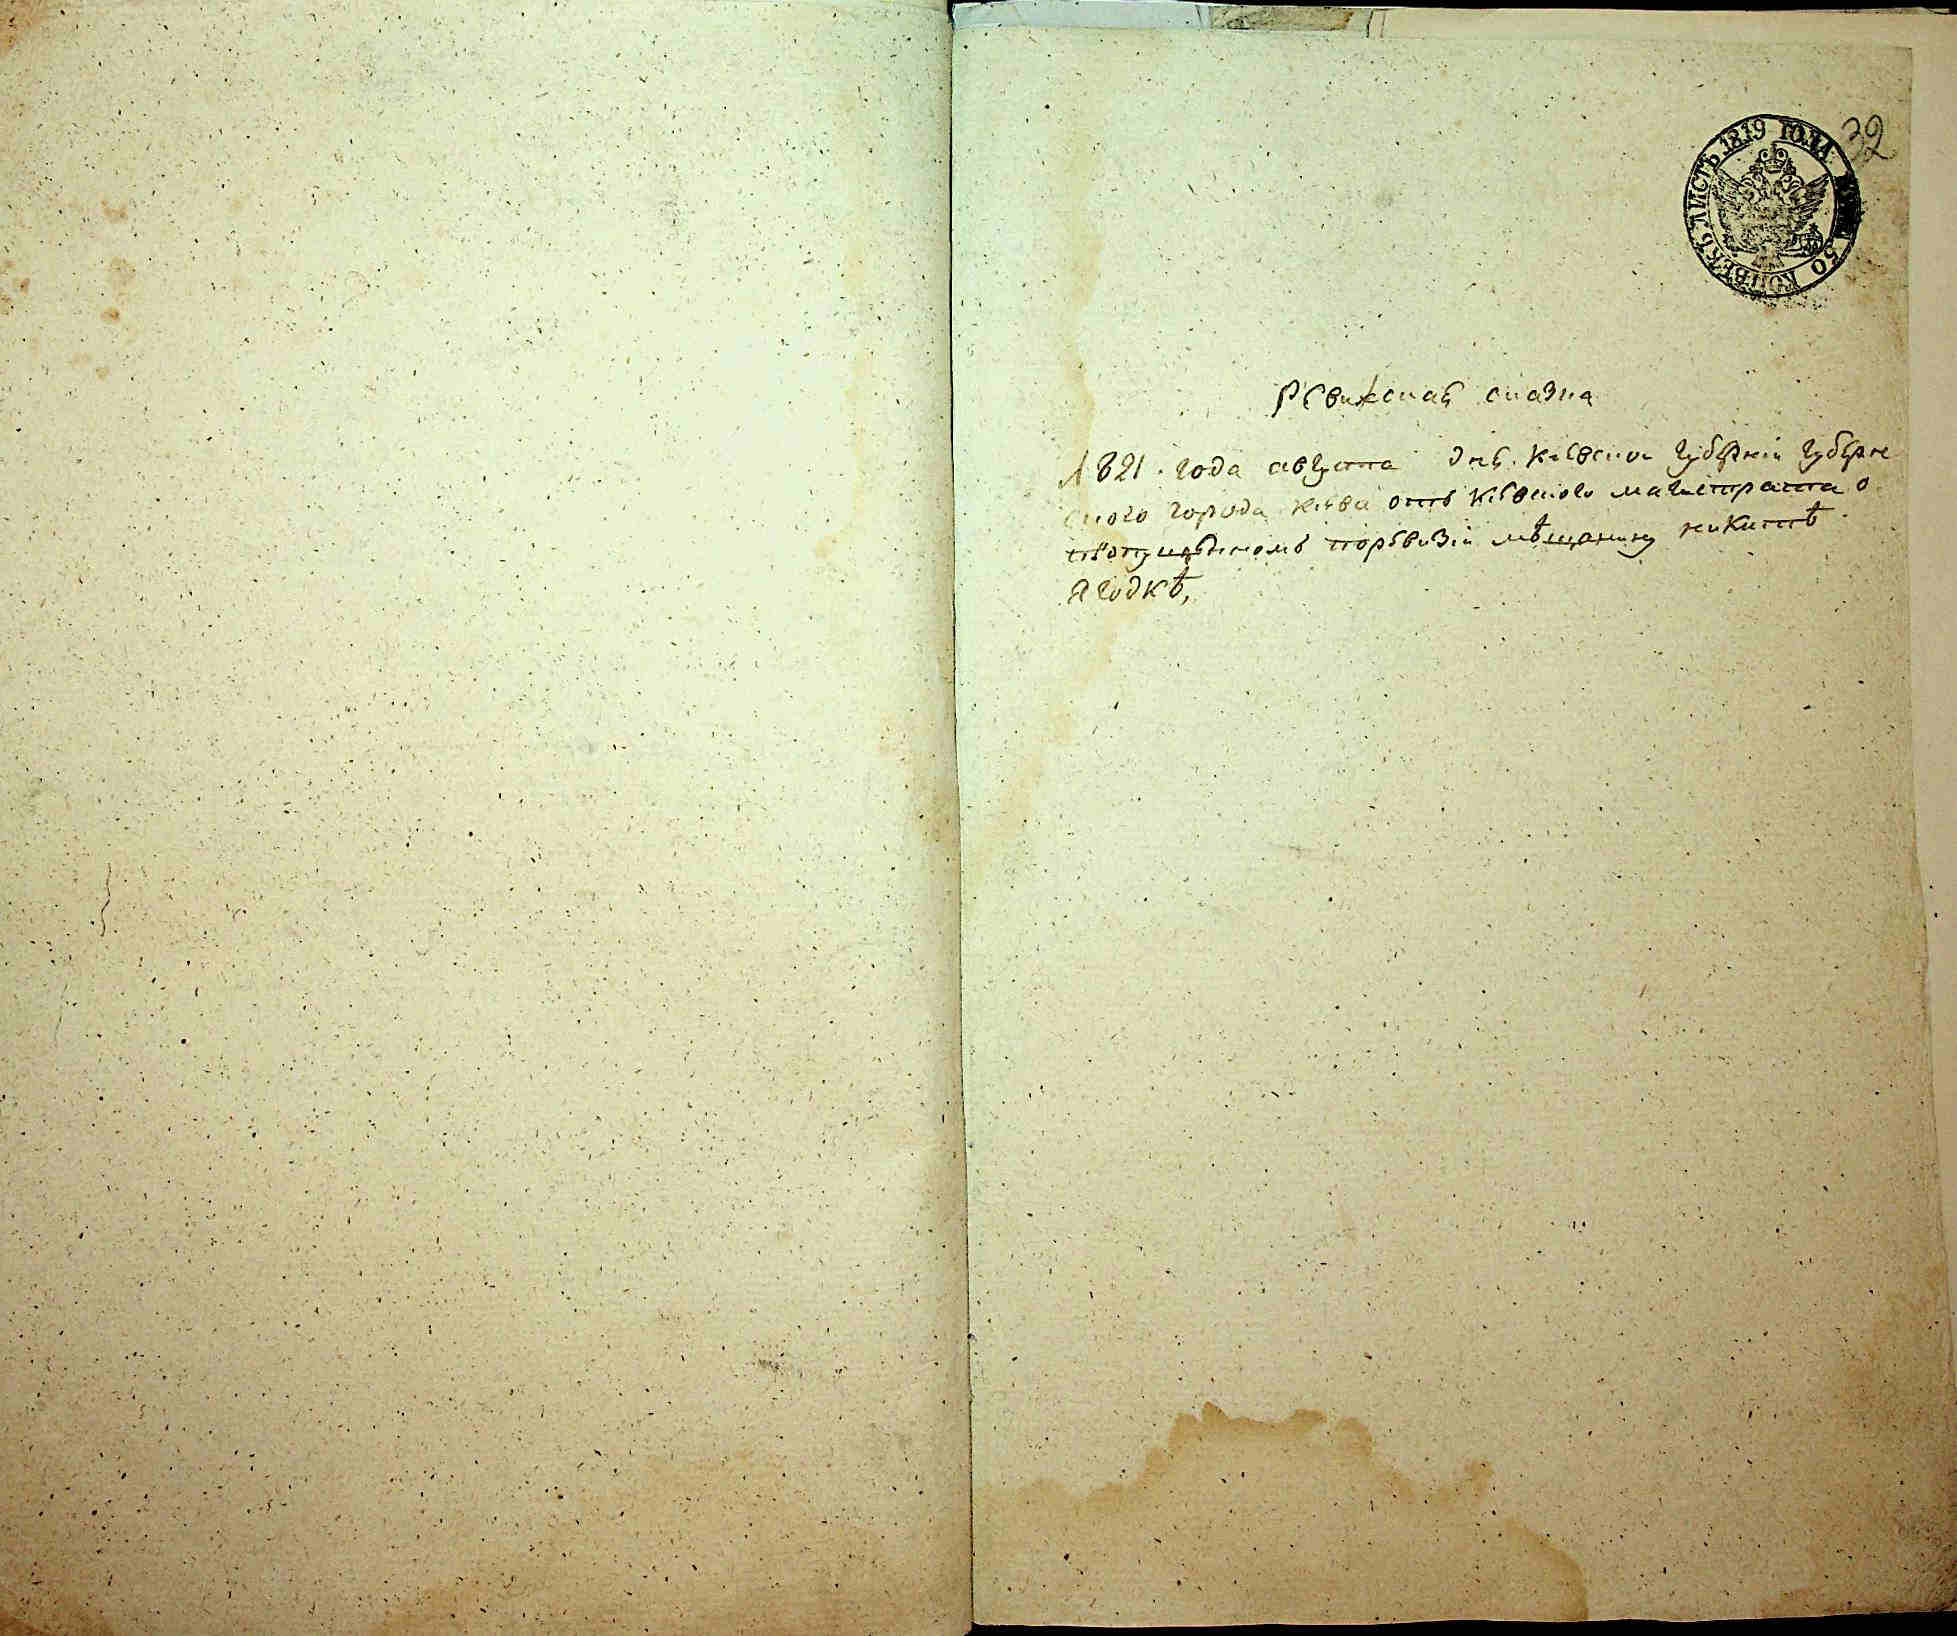 32
ЛИСТЪ 1819 ГОДА 50 КОПѢЕКЪ
Ревижская сказка
1821. года августа дня. Киевской губернии губерн
ского города Киева отъ Киевского магистрата о
поревизии мѣщанину никитѣ
Ягодкѣ,